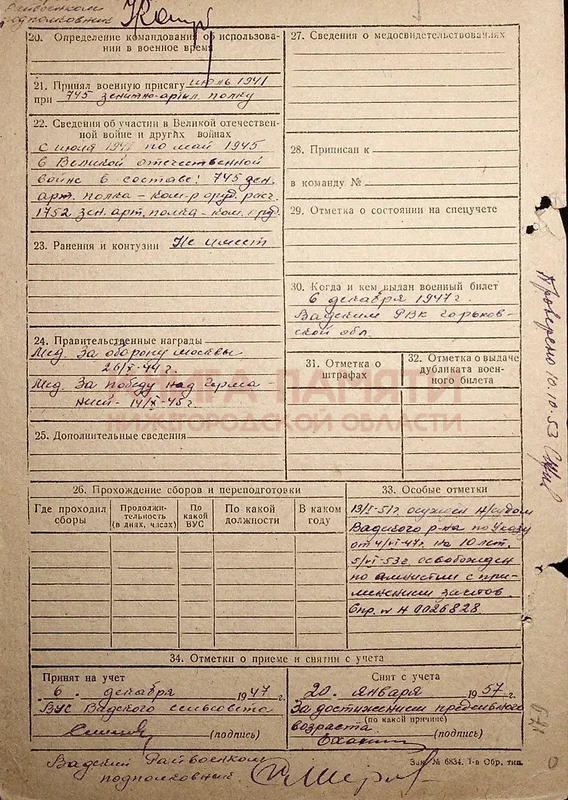 Райвоенком
подполковник
20. Определение командования об использова-
нии в военное время
21. Принял военную присягу июль 1941
при 745 зенитно-артил. полку
22. Сведения об участии в Великой отечествен-
ной войне и других войнах
с июля 1941 по май 1945
в Великой отечественной
войне в составе: 745 зен.
арт. полка - ком-р оруд. расч.
1752 зен. арт. полка - ком. оруд.
23. Ранения и контузии Не имеет
24. Правительственные награды
Мед. За оборону москвы
Мед. За победу над Герма-
нией -
25. Дополнительные сведения
26. Прохождение сборов и переподготовки
Где проходил сборы
Продолжи-
тельность
(в днах, часах)
По какой ВУС
По какой должности
В каком году
27. Сведения о медосвидетельствованиях
28. Приписан к
в команду №
29. Отметка о состоянии на спецучете
30. Когда и кем выдан военный билет
6 декабря 1947 г.
Вадским РВК горьков-
ской обл.
31. Отметка о штрафах
32. Отметка о выдаче
дубликата воен-
ного билета
33. Особые отметки
осужден Н/судом
Вадского р-на по Указу
от 4/VI-47г. на 10 лет.
5/VI-53г освобожден
по амнистии с при-
менением
Спр. № Н 0026828
34. Отметки о приеме и снятии с учета
Принят на учет
6. декабря 1947 г.
ВУС Вадского сельсовета
(подпись)
Снят с учета
20. Января 1957 г.
За достижением предельного
(по какой причине)
возраста
(подпись)
Вадский Райвоенком
подполковник
Зак. № 6834. 1-я Обр. тип.
Проверено 10.10.53
КНИГА ПАМЯТИ
НИЖЕГОРОДСКОЙ ОБЛАСТИ